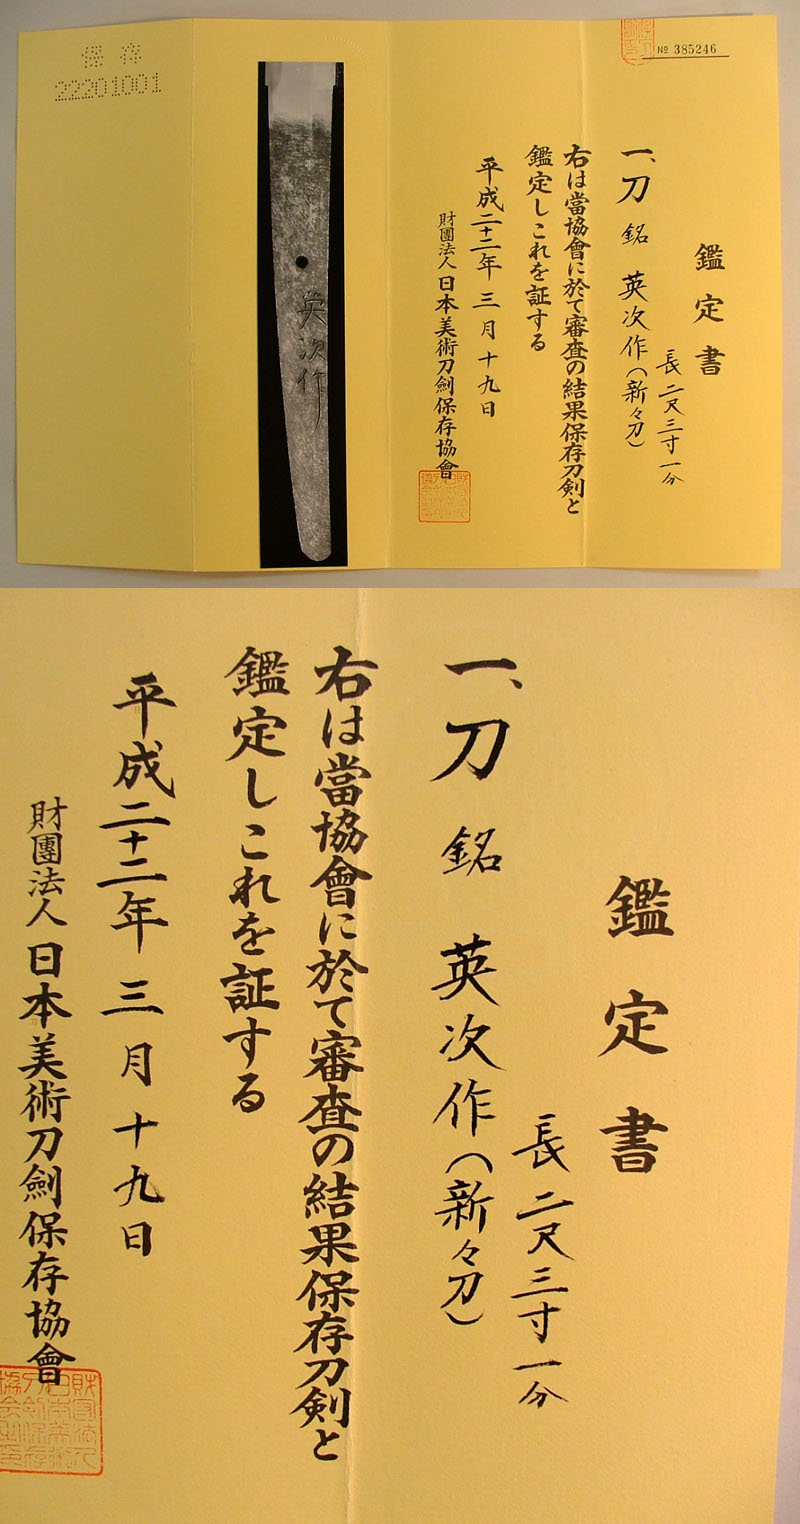 № 385246
鑑定書
長 二尺三寸一分
一、刀 銘 英次作(新々刀)
右は當協會に於て審査の結果保存刀剣と
鑑定しこれを証する
平成二十二年 三月十九日
財團法人 日本美術刀劍保存協會
英次作
保存
22201001
鑑定書
長 二尺三寸一分
一、刀 銘 英次作(新々刀)
右は當協會に於て審査の結果保存刀剣と
鑑定しこれを証する
平成二十二年 三月十九日
財團法人 日本美術刀劍保存協會